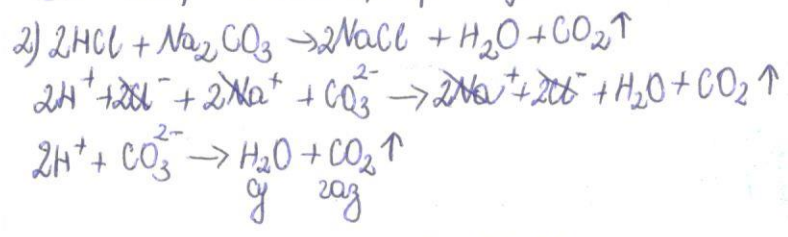 2) 2HCl + Na₂CO₃ → 2NaCl + H₂O + CO₂↑
2H⁺ + 2Cl⁻ + 2Na⁺ + CO₃²⁻ → 2Na⁺ + 2Cl⁻ + H₂O + CO₂↑
2H⁺ + CO₃²⁻ → H₂O + CO₂↑
газ